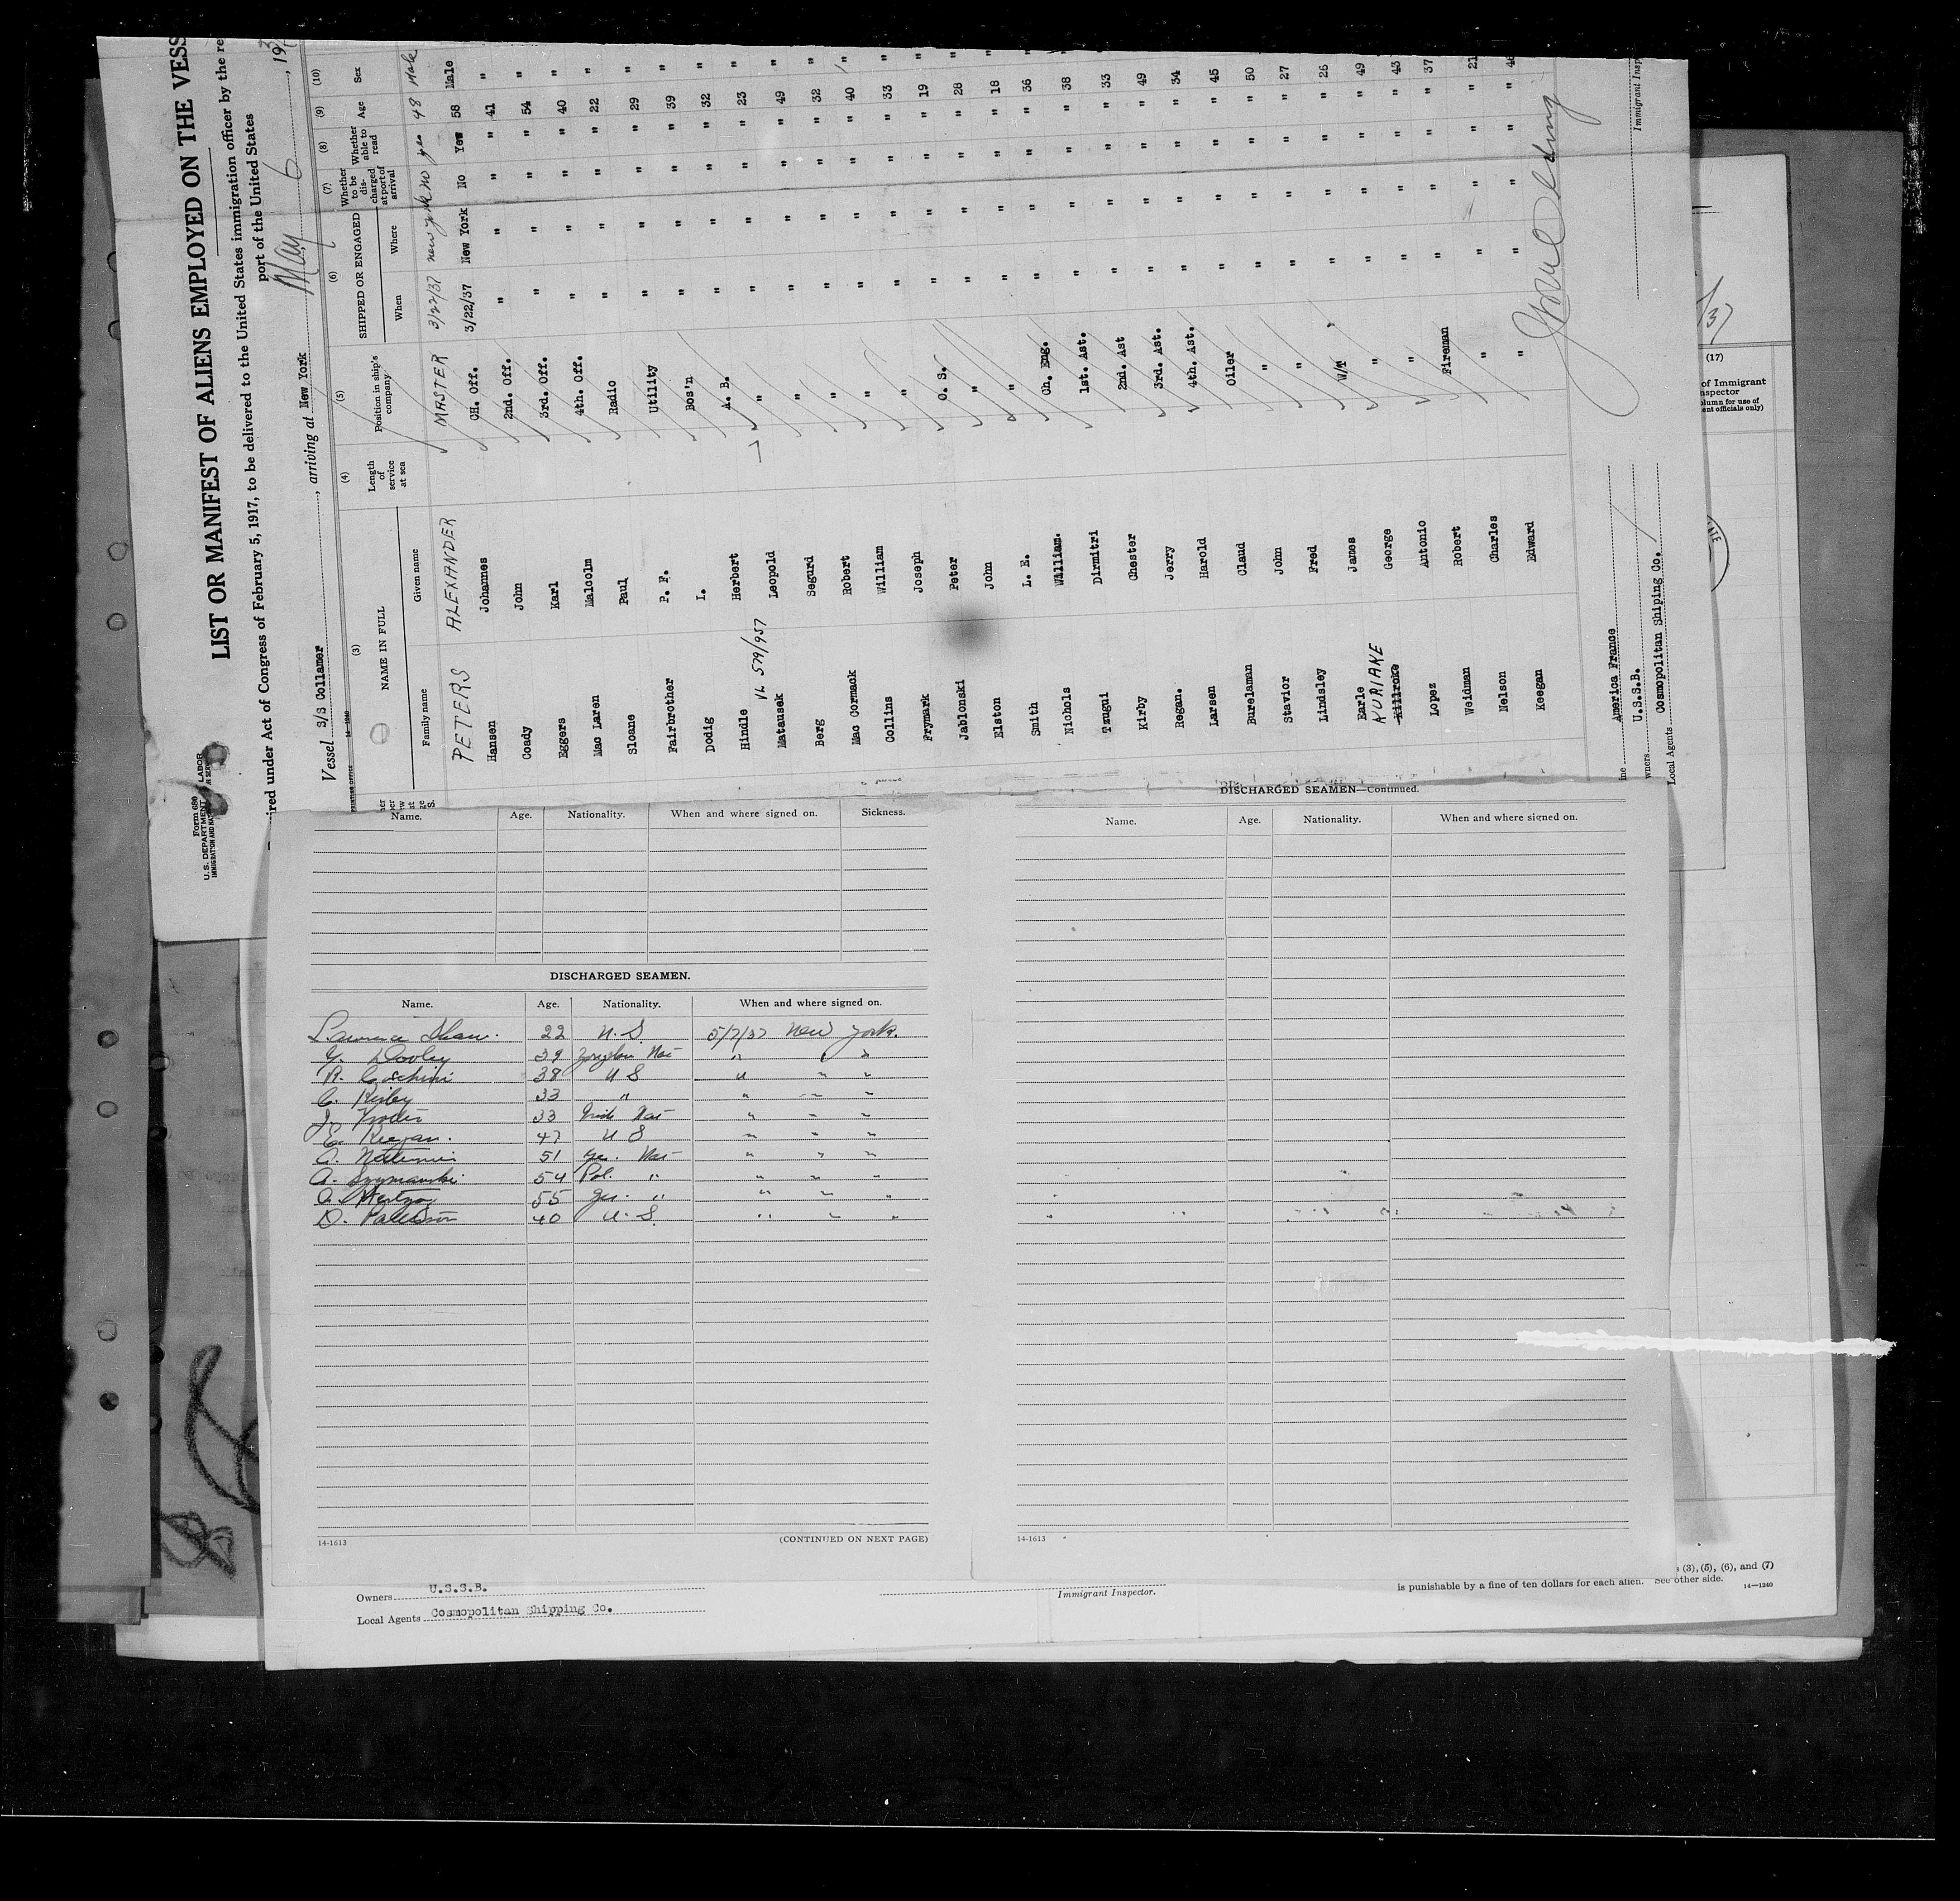 Form 680
U. S. DEPARTMENT LABOR
LIST OR MANIFEST OF ALIENS EMPLOYED ON THE VESS
ired under Act of Congress of February 5, 1917, to be delivered to the United States immigration officer by the re
port of the United States
Vessel S/S Collamer, arriving at New York May 6, 19
(3) (4) (5) (6) (7) (8) (9) (10)
NAME IN FULL Length of service at sea Position in ship's company SHIPPED OR ENGAGED Whether to be discharged at port of arrival Whether able to read Age Sex
Family name Given name When Where
PETERS ALEXANDER MASTER 3/22/37 new york no yes 48 Male
Hansen Johannes CH. Off. 3/22/37 New York No Yes 58 Male
Coady John 2nd. Off. " " " " 41 "
Eggers Karl 3rd. Off. " " " " 54 "
Mac Laren Malcolm 4th. Off. " " " " 40 "
Sloane Paul Radio " " " " 22 "
Fairbrother P. F. Utility " " " " 29 "
Dodig I. Bos'n " " " " 39 "
Hindle Herbert A. B. " " " " 32 "
VL 579/957
Matausek Leopold " " " " " 23 "
Berg Segurd " " " " " 49 "
Mac Cormack Robert " " " " " 32 "
Collins William " " " " " 40 "
Frymark Joseph " " " " " 33 "
Jablonski Peter O. S. " " " " 19 "
Elston John " " " " " 28 "
Smith L. E. " " " " " 18 "
Nichols William. Ch. Eng. " " " " 36 "
Tzugui Dirmitri 1st. Ast. " " " " 38 "
Kirby Chester 2nd. Ast " " " " 33 "
Regan. Jerry 3rd. Ast. " " " " 49 "
Larsen Harold 4th. Ast. " " " " 34 "
Burelaman Claud Oiler " " " " 45 "
Stavior John " " " " " 50 "
Lindsley Fred " " " " " 27 "
Earle James W/T " " " " 26 "
KURIAKE
Killroke George " " " " " 49 "
Lopez Antonio " " " " " 43 "
Weidman Robert Fireman " " " " 37 "
Nelson Charles " " " " " 21 "
Keegan Edward " " " " " 48 "
ine America France
wners U.S.S.B.
Local Agents Cosmopolitan Shiping Co.
Immigrant Insp
(17)
of Immigrant
nspector
olumn for use of
ent officials only)
Name. Age. Nationality. When and where signed on. Sickness.
DISCHARGED SEAMEN.
Name. Age. Nationality. When and where signed on.
Lawrence Shaw. 22 U. S. 5/7/37 New York.
Y. Dooley 39 " " "
R. 38 U S " " "
C. Kirby 33 " " " "
J. 33 " " "
E. Keegan. 47 U S " " "
A. 51 Ger. Nat " " "
A. Szymanski 54 Pol. " " " "
55 Ger. " " " "
D. Patterson 40 U. S. " " "
14-1613
(CONTINUED ON NEXT PAGE)
DISCHARGED SEAMEN—Continued.
Name. Age. Nationality. When and where signed on.
14-1613
Owners U.S.S.B.
Local Agents Cosmopolitan Shipping Co.
Immigrant Inspector.
(3), (5), (6), and (7)
is punishable by a fine of ten dollars for each alien. See other side.
14—1240